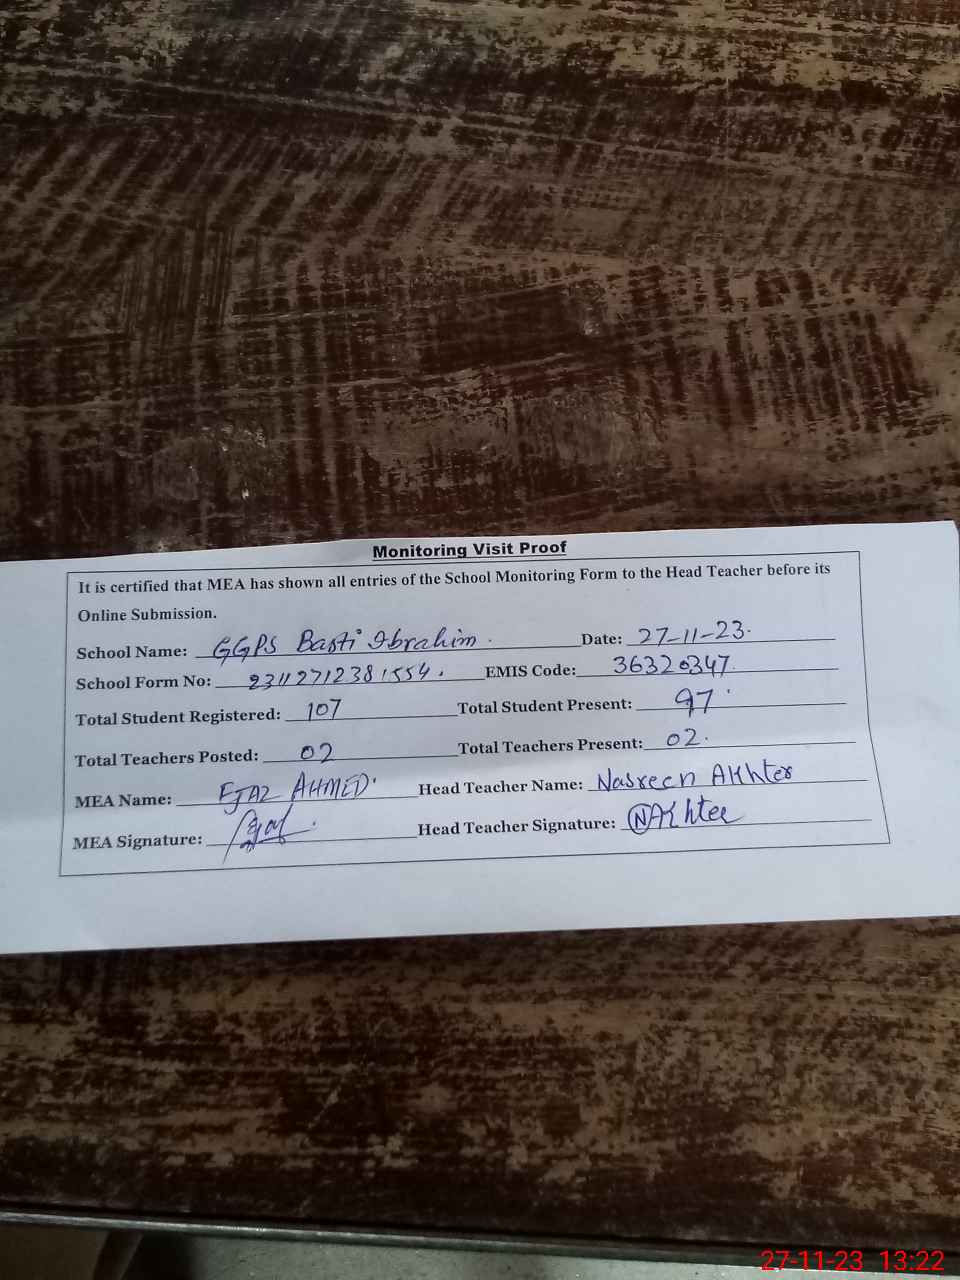 Monitoring Visit Proof
It is certified that MEA has shown all entries of the School Monitoring Form to the Head Teacher before its
Online Submission.
School Name: GGPS Basti Ibrahim. Date: 27-11-23.
School Form No: 23112712381554. EMIS Code: 36320347
Total Student Registered: 107 Total Student Present: 97
Total Teachers Posted: 02 Total Teachers Present: 02.
MEA Name: EJAZ AHMED. Head Teacher Name: Nasreen Akhter
MEA Signature: Head Teacher Signature: NAkhter
27-11-23 13:22